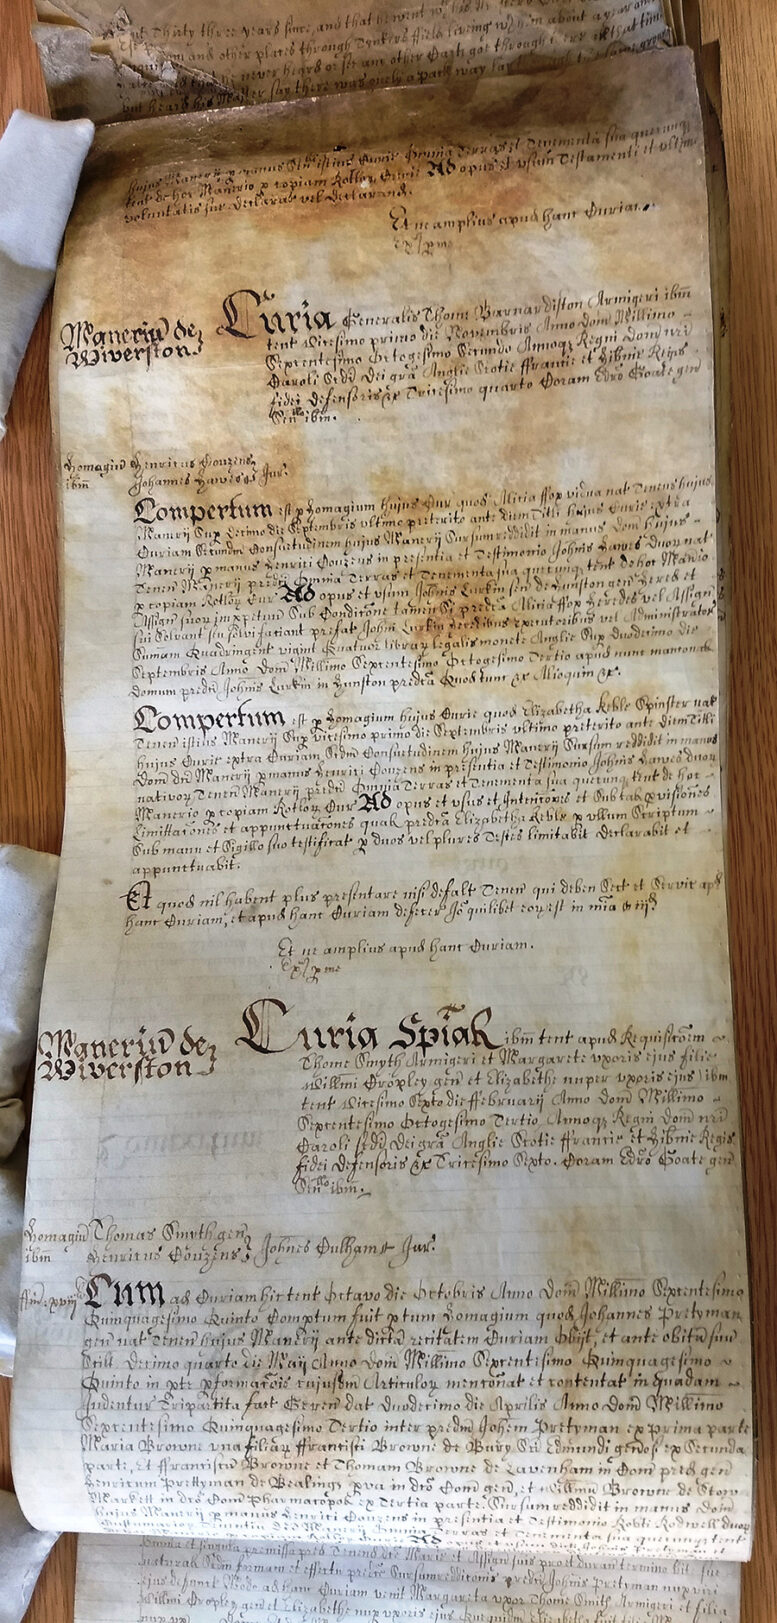 Thirty three years since, and that he went
and other places through Tynkers field leaving about a year
he never heard or see any other Oath goe through there all that time
but heard his Master say there was only a path way
hujus Manerij p manus istius Curie Omnia Terras et Tenementa sua quecunq
tent de hoc Manerio p Copiam Rotlor Curie Ad opus et usum Testamenti et ultime
voluntatis sue declarat vel declarand.
Et ne amplius apud hanc Curiam.
ex p me
Maneriu de Wiverston
Curia Generalis Thome Barnardiston Armigeri ibm
tent vicesimo primo die Novembris Anno Dom Millimo
Sexcentesimo Octogesimo Secundo Annoq Regni Dom nri
Caroli Scdi Dei gra Anglie Scotie ffrancie et Hibnie Regis
fidei defensoris &c Tricesimo quarto Coram Edro Goate gen
Senllo ibm.
Homagiu ibm
Henricus Couzens
Johannes Hawes Jur.
Compertum est p homagium hujus Cur quod Alicia ffox vidua nat Tenens hujus
Manerij Sup decimo die Septembris ultimo preterito ante diem Tituli hujus Curie extra
Curiam Secundm Consuetudinem hujus Manerij Sursumreddidit in manus Dom hujus
Manerij p manus Henrici Couzens in presentia et Testimonio Johnis Hawes Duor nat
Tenen Manerij predci Omnia Terras et Tenementa sua quecunq tent de hoc Manio
p Copiam Rotlor Cur Ad opus et usum Johnis Larkin sen de Hunston gen hered et
Assign suor imppetuum Sub Condicone tamen Si predca Alicia ffox heredes vel Assign
sui Solvant seu solvi faciant prefat John Larkin heredibus executoribus vel Administrator
Summam Quadringent viginti Quatuor librar legalis monete Anglie Sup duodecimo die
Septembris Anno Dom Millimo Sexcentesimo Octogesimo Tertio apud nunc mansonal
domum predci Johnis Larkin in Hunston predca Quod tunc &c Alioquin &c.
Compertum est p homagium hujus Curie quod Elizabetha Keble Spinster nat
Tenen istius Manerij Sup vicesimo primo die Septembris ultimo preterito ante diem Tituli
hujus Curie extra Curiam Scdm Consuetudinem hujus Manerij Sursum reddidit in manus
Dom dci Manerij p manus Henrici Couzens in presentia et Testimonio Johnis Hawes duor
nativor Tenen Manerij predci Omnia Terras et Tenementa sua quecunq tent de hoc
Manerio p Copiam Rotlor Cur Ad opus et usus et Intencones et Sub tal pvisiones
Limittacones et appunctuacones qual predca Elizabetha Keble p ullum Scriptum
Sub manu et Sigillo suo testificat p duos vel plures Testes limitabit declarabit et
appunctuabit.
Et quod nil habent plus presentare nisi defalt Tenen qui deben Sect et Servic apd
hanc Curiam, et apud hanc Curiam defecer Io quilibet eor est in mia iijd
Et ne amplius apud hanc Curiam.
Ex p me
Maneriu de Wiverston
Curia Spialis ibm tent apud Requisicoem
Thome Smyth Armigeri et Margarete uxoris ejus filie
Willimi Cropley gen et Elizabethe nuper uxoris ejus ibm
tent vicesimo Sexto die ffebruarij Anno Dom Millimo
Sexcentesimo Octogesimo Tertio, Annoq Regni Dom nri
Caroli Scdi, Dei gra Anglie Scotie ffrancie et Hibnie Regis
fidei defensoris &c Tricesimo Sexto. Coram Edro Goate gen
Senllo ibm.
Homagiu ibm
Thomas Smyth gen
Henricus Couzens Johnes Culham Jur.
Cum ad Curiam hic tent Octavo die Octobris Anno Dom Millimo Sexcentesimo
Quinquagesimo Quinto Comptum fuit p tunc homagium quod Johannes Pretyman
gen nat Tenen hujus Manerij ante dicta recitatem Curiam Obijt, et ante obitu suu
Scilt Decimo quarto die Maij Anno Dom Millimo Sexcentesimo Quinquagesimo
Quinto in pte pformacois cujusdm Articulor menconat et contentat in quadam
Indentur Tripartita fact Geren dat duodecimo die Aprilis Anno Dom Millimo
Sexcentesimo Quinquagesimo Tertio inter predm Johem Pretyman ex prima parte
Maria Browne una filiar ffrancisci Browne de Bury Sci Edmundi genos ex Secunda
parte, et ffranciscu Browne et Thomam Browne de Lavenham in Com pred gen
Henricum Prettyman de Bealings pva in dco Com gen, et Willim Browne de Stow
Markett in dco Com Pharmacopol ex Tertia parte. Sursumreddidit in manus Dom
hujus Manerij p manus Henrici Couzens in presentia et Testimonio Robti Rodwell duor
Manerij Omnia Terras et Tenementa sua quecunq tent
Omnia et Singula premissa Tenend dce Marie et Assign suis pro et duran termino vit sue
natural Scdm formam et effectu predce Sursumreddiconis predci Johnis Pretyman nup viri
ejus defunct Modo ad hanc Curiam venit Margareta uxor Thome Smith Armigeri et filia
Willimi Cropley gen et Elizabethe nup uxoris ejus